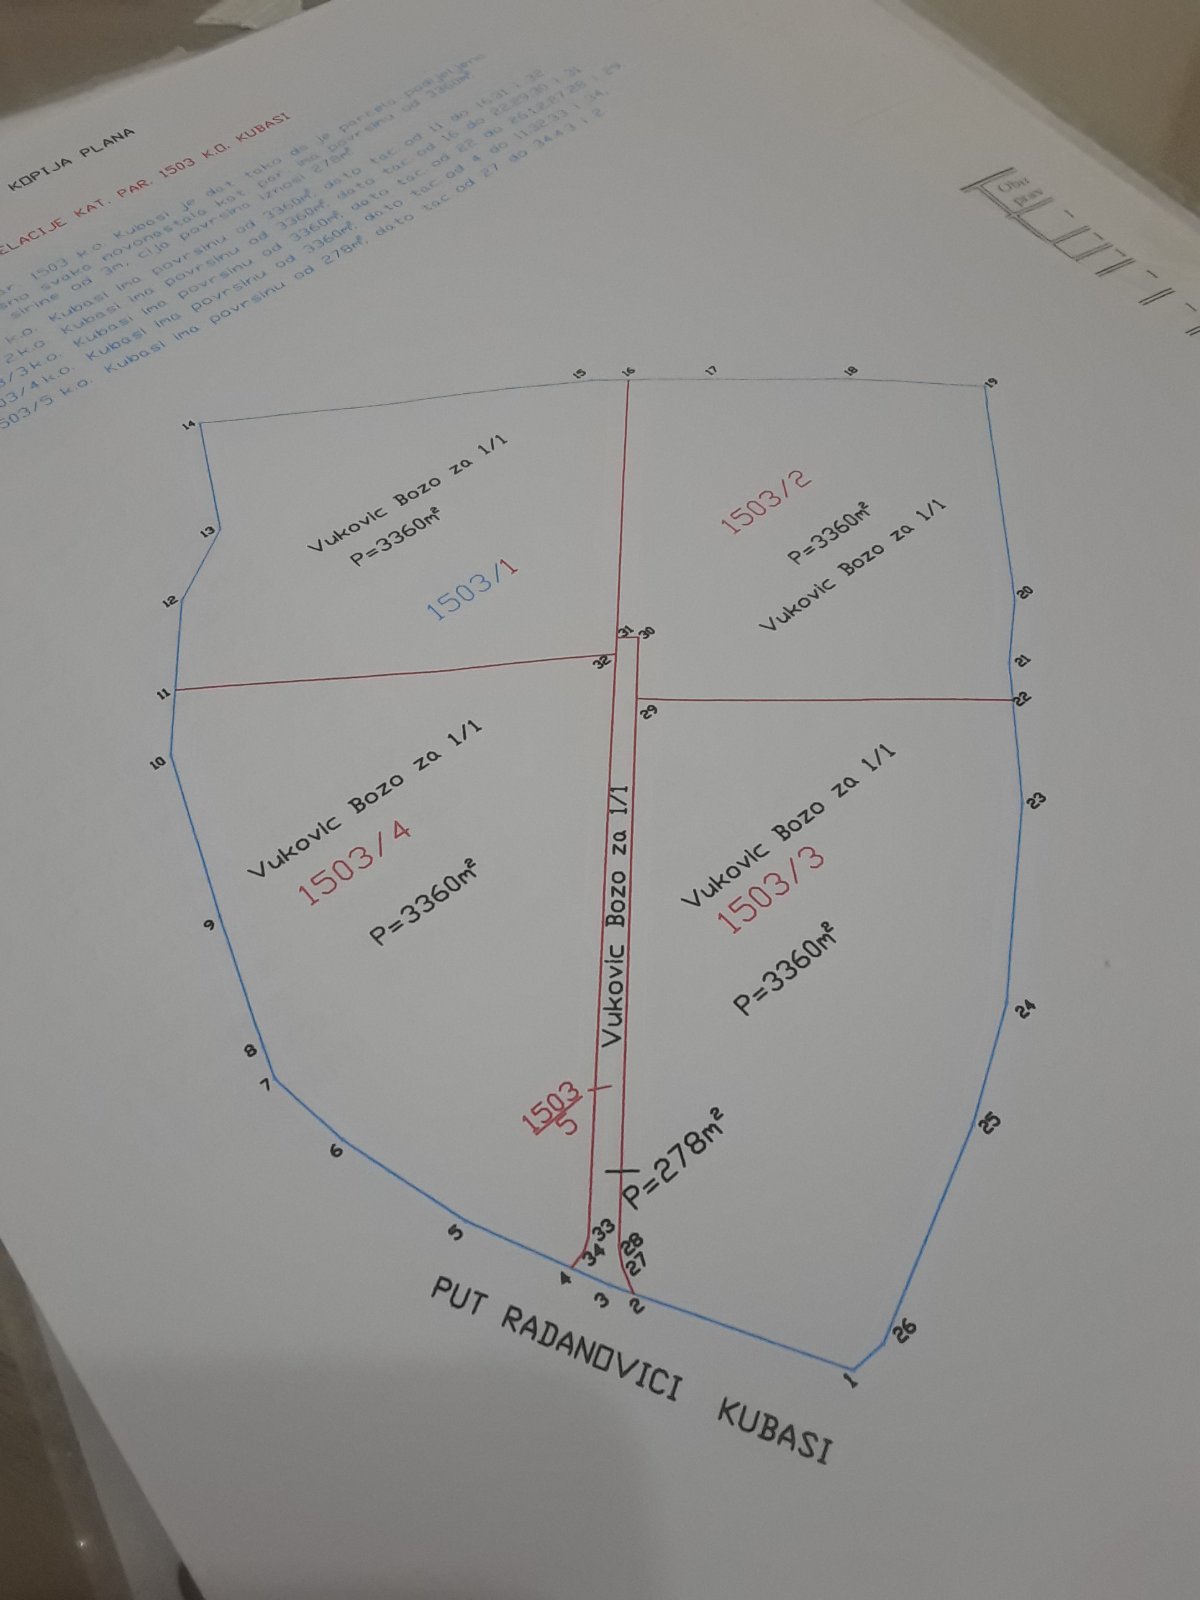 KOPIJA PLANA
ELACIJE KAT. PAR. 1503 K.O. KUBASI
ar. 1503 k.o. Kubasi je dat tako da je parcela podijeljena
sno svaka novonastala kat. par. ima povrsinu od 3360m²
sirine od 3m, cija povrsina iznosi 278m²
k.o. Kubasi ima povrsinu od 3360m², dato tac od 11 do 16,31 i 32
2 k.o. Kubasi ima povrsinu od 3360m², dato tac od 16 do 22,29,30 i 31
3/3 k.o. Kubasi ima povrsinu od 3360m², dato tac od 22 do 26,1,2,27,28 i 29
03/4 k.o. Kubasi ima povrsinu od 3360m², dato tac od 4 do 11,32,33 i 34,
503/5 k.o. Kubasi ima povrsinu od 278m², dato tac od 27 do 34,4,3 i 2
14
15
16
17
18
19
Vukovic Bozo za 1/1
P=3360m²
1503/1
1503/2
P=3360m²
Vukovic Bozo za 1/1
13
12
20
21
31
30
32
11
22
29
10
23
Vukovic Bozo za 1/1
1503/4
P=3360m²
Vukovic Bozo za 1/1
Vukovic Bozo za 1/1
1503/3
P=3360m²
9
24
8
7
25
6
1503
5
P=278m²
5
33
34
28
27
4
3
2
26
1
PUT RADANOVICI KUBASI